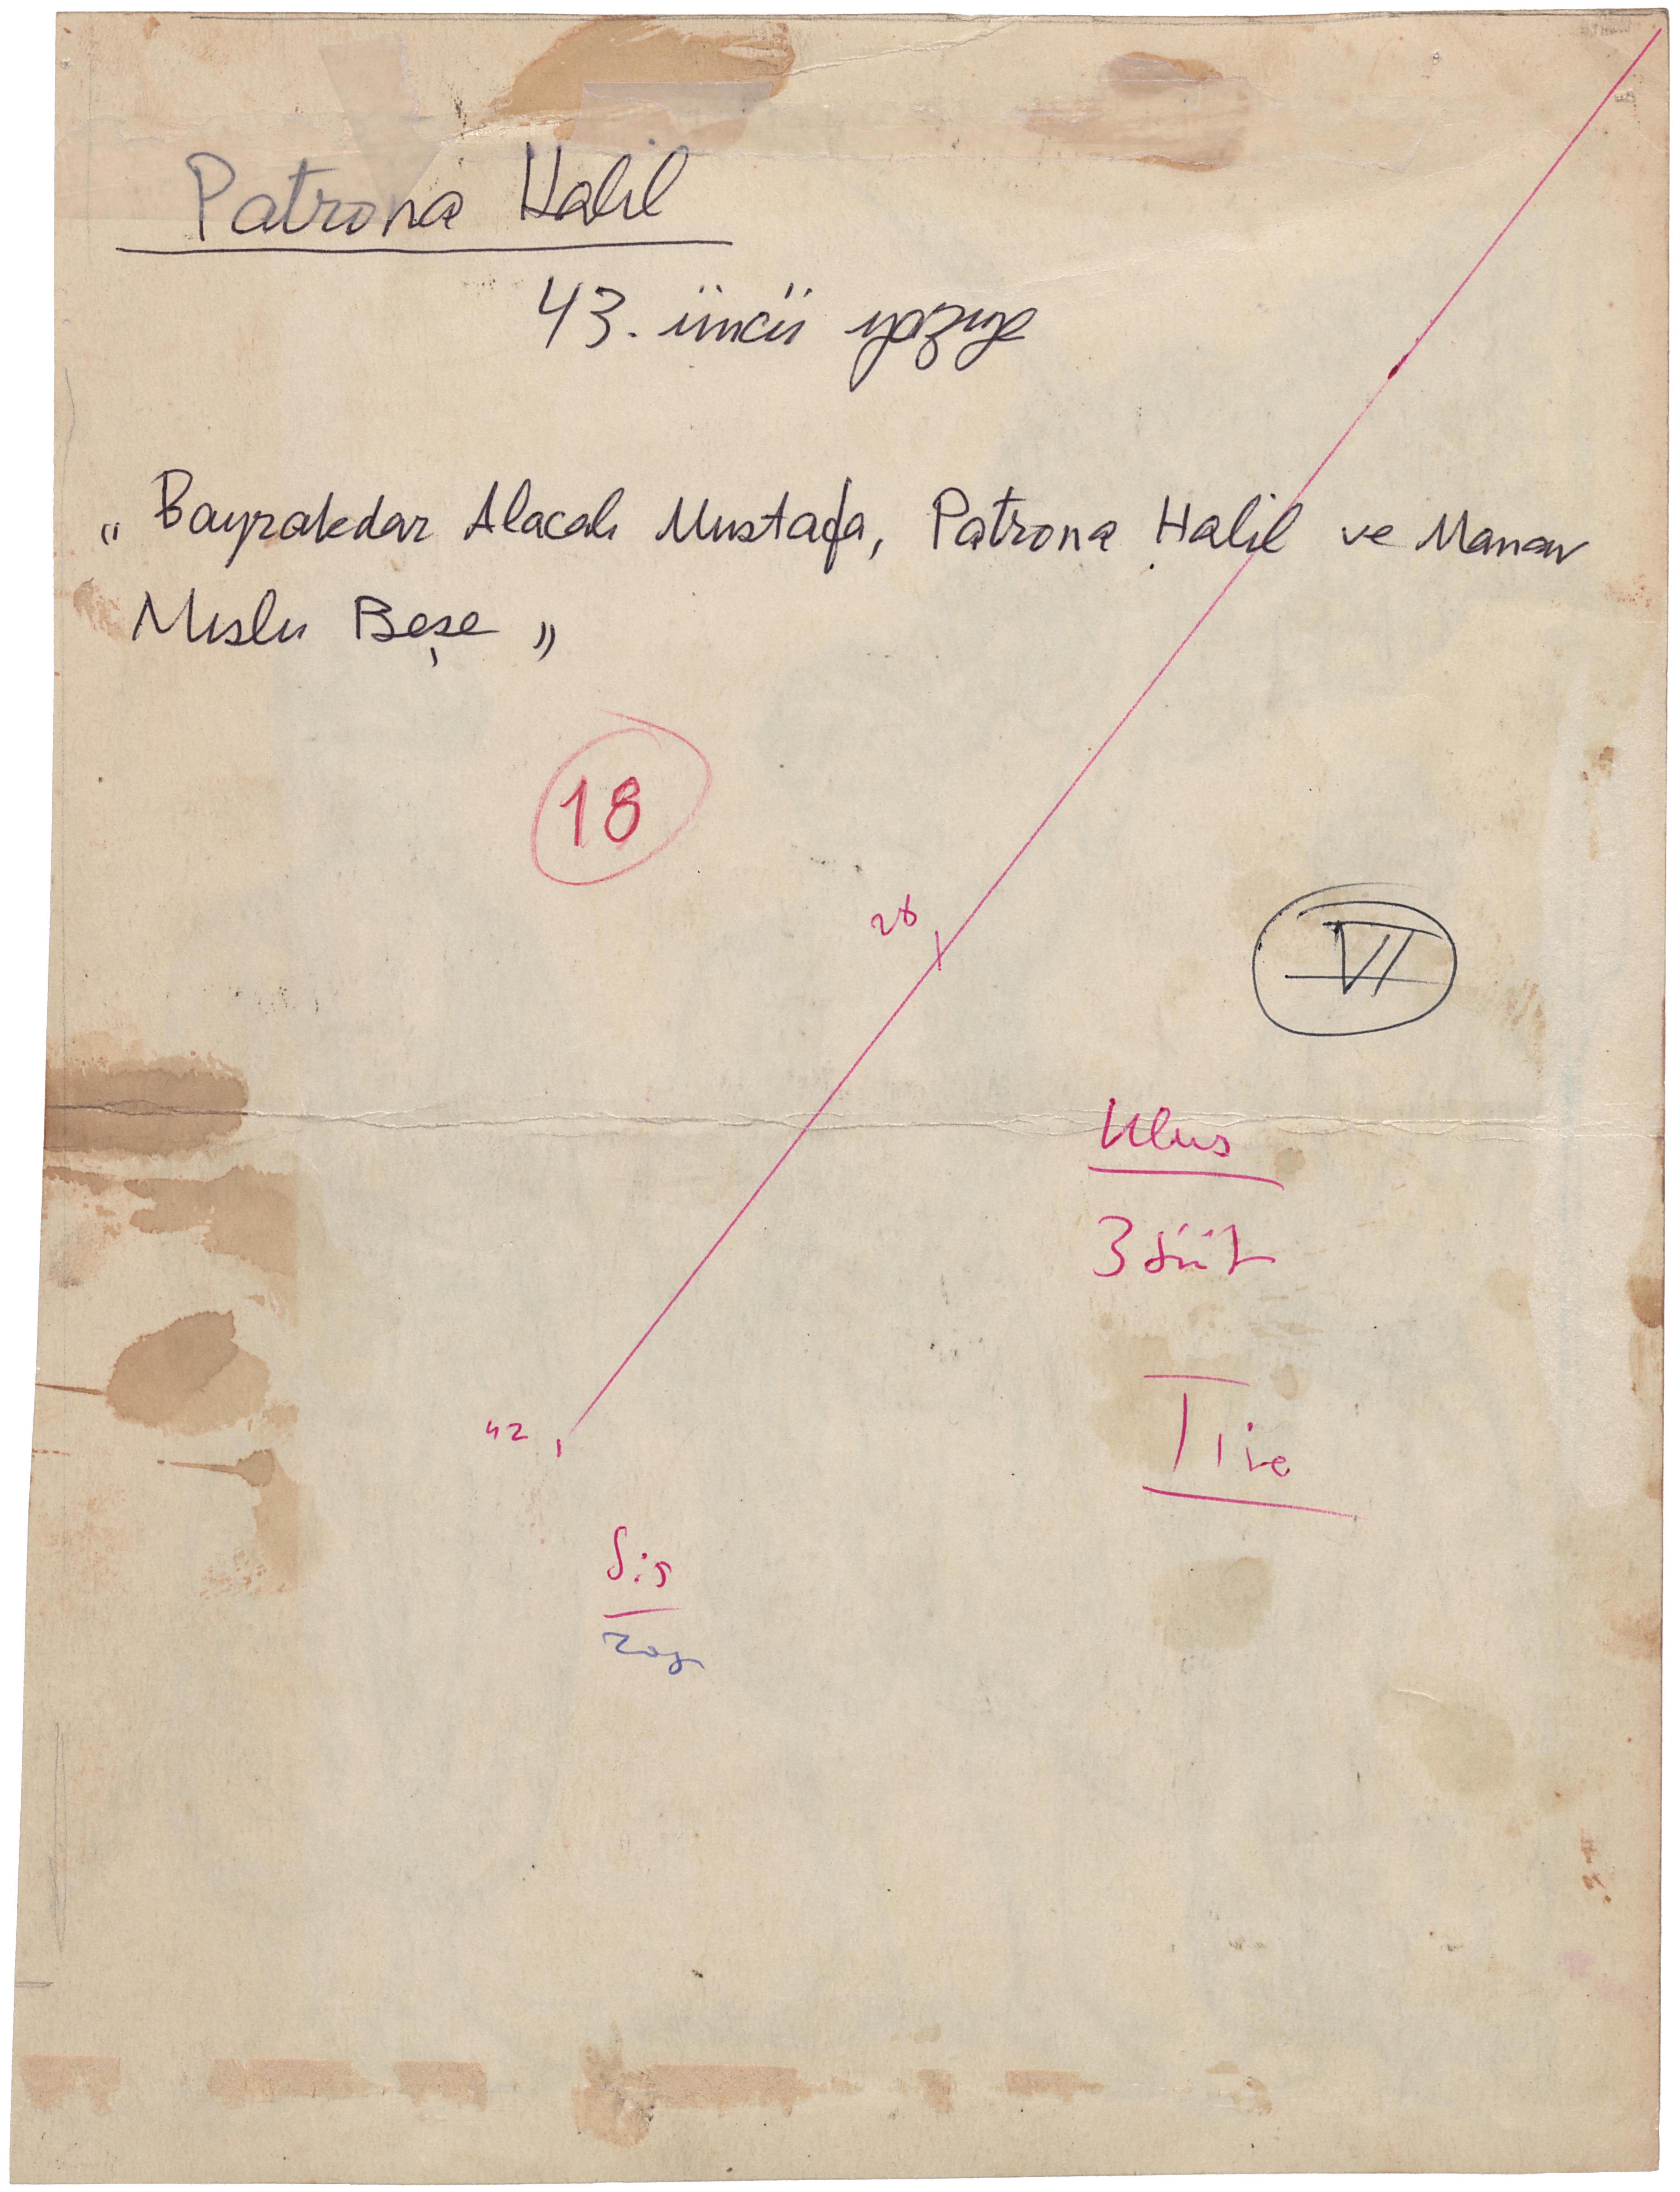 Patrona Halil
43. üncü yazıya
„ Bayrakdar Alacalı Mustafa, Patrona Halil ve Manav
Muslu Beşe „
18
28
VI
Ulus
3 süt
42